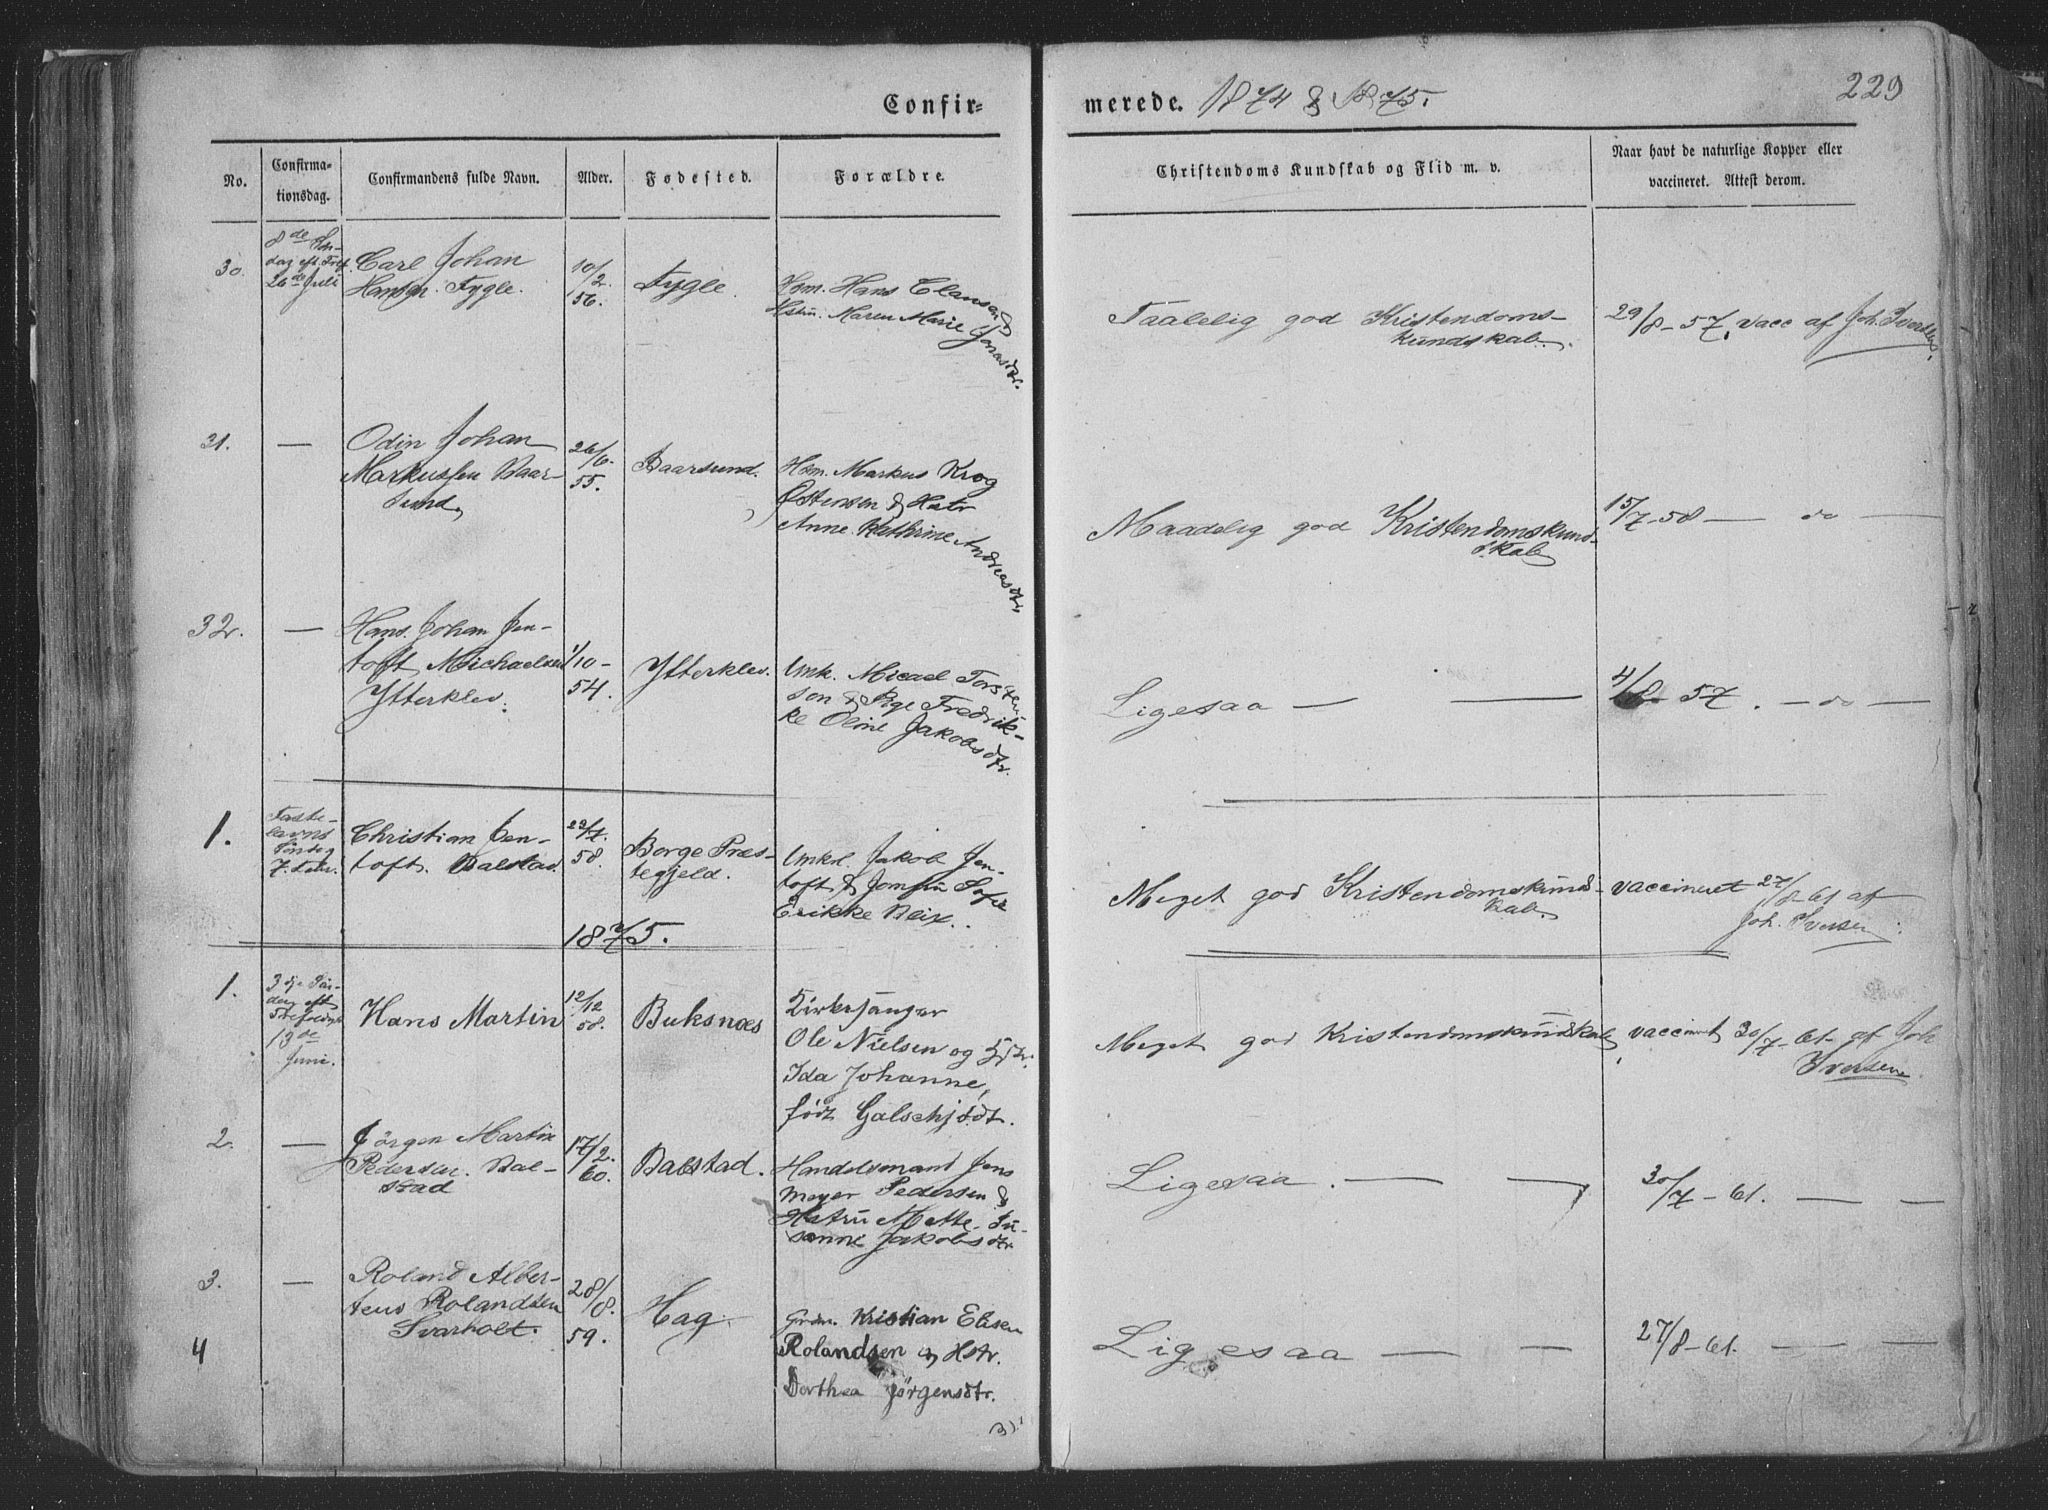 Confir-
merede. 1874 & 1875.
229
No.
Confirma-
tionsdag.
Confirmandens fulde Navn.
Alder.
Fødested.
Forældre.
Christendoms Kundskab og Flid m. v.
Naar havt de naturlige Kopper eller
vaccineret. Attest derom.
30.
8de Søn-
dag eft. Tref.
26de Juli
Carl Johan
Hansen Fygle.
10/2
56.
Fygle.
Hsm. Hans Clausen &
Hstru. Maren Marie Jonasdtr.
Taalelig god Kristendoms-
kundskab.
29/8-57. vacc af Joh. Iversen.
31.
—
Odin Johan
Markussen Baar-
sund
26/6.
55.
Baarsund.
Hsm. Markus Krog
Østensen & Hstr
Anne Kathrine Andreasdtr.
Maadelig god Kristendomskund-
skab
15/7-58 — do —
32.
—
Hans Johan Jen-
toft Michaelsen
Ytterklev.
1/10-
54.
Ytterklev.
Unk. Micael Torsten
sen & Pige Fredrik-
ke Oline Jakobsdtr.
Ligesaa — —
4/8-57. — do —
1.
Faste-
lavns
Søndag
7. Febr.
Christian Jen-
toft. Balstad.
22/7.
58.
Borge Præs-
tegjeld.
Unkl Jakob Jen-
toft & Jomfru Sofie
Erikke Blix.
Meget god Kristendomskund-
skab
vaccineret 27/8-61 af
Joh. Iversen
1875.
1.
3dje Søn-
dag eft
Trefoldigh
13de
Juni.
Hans Martin
12/12
58.
Buksnæs
Kirkesanger
Ole Nielsen og Hstr.
Ida Johanne,
født Galschjødt.
Meget god Kristendomskundskab
vaccineret 30/7-61. af Joh
Iversen
2.
—
Jörgen Martin
Pedersen Bal-
stad
17/2.
60.
Balstad.
Handelsmand Jens
Meyer Pedersen &
Hstru Mette Su-
sanne Jakobsdtr
Ligesaa. — —
30/7-61. — —
3.
—
Roland Alber-
teus Rolandsen
Svarholt.
28/8.
59.
Hag.
Grdm. Kristian Elisen
Rolandsen og Hstr.
Dorthea Jørgensdtr.
Ligesaa — — —
27/8-61. — —
4